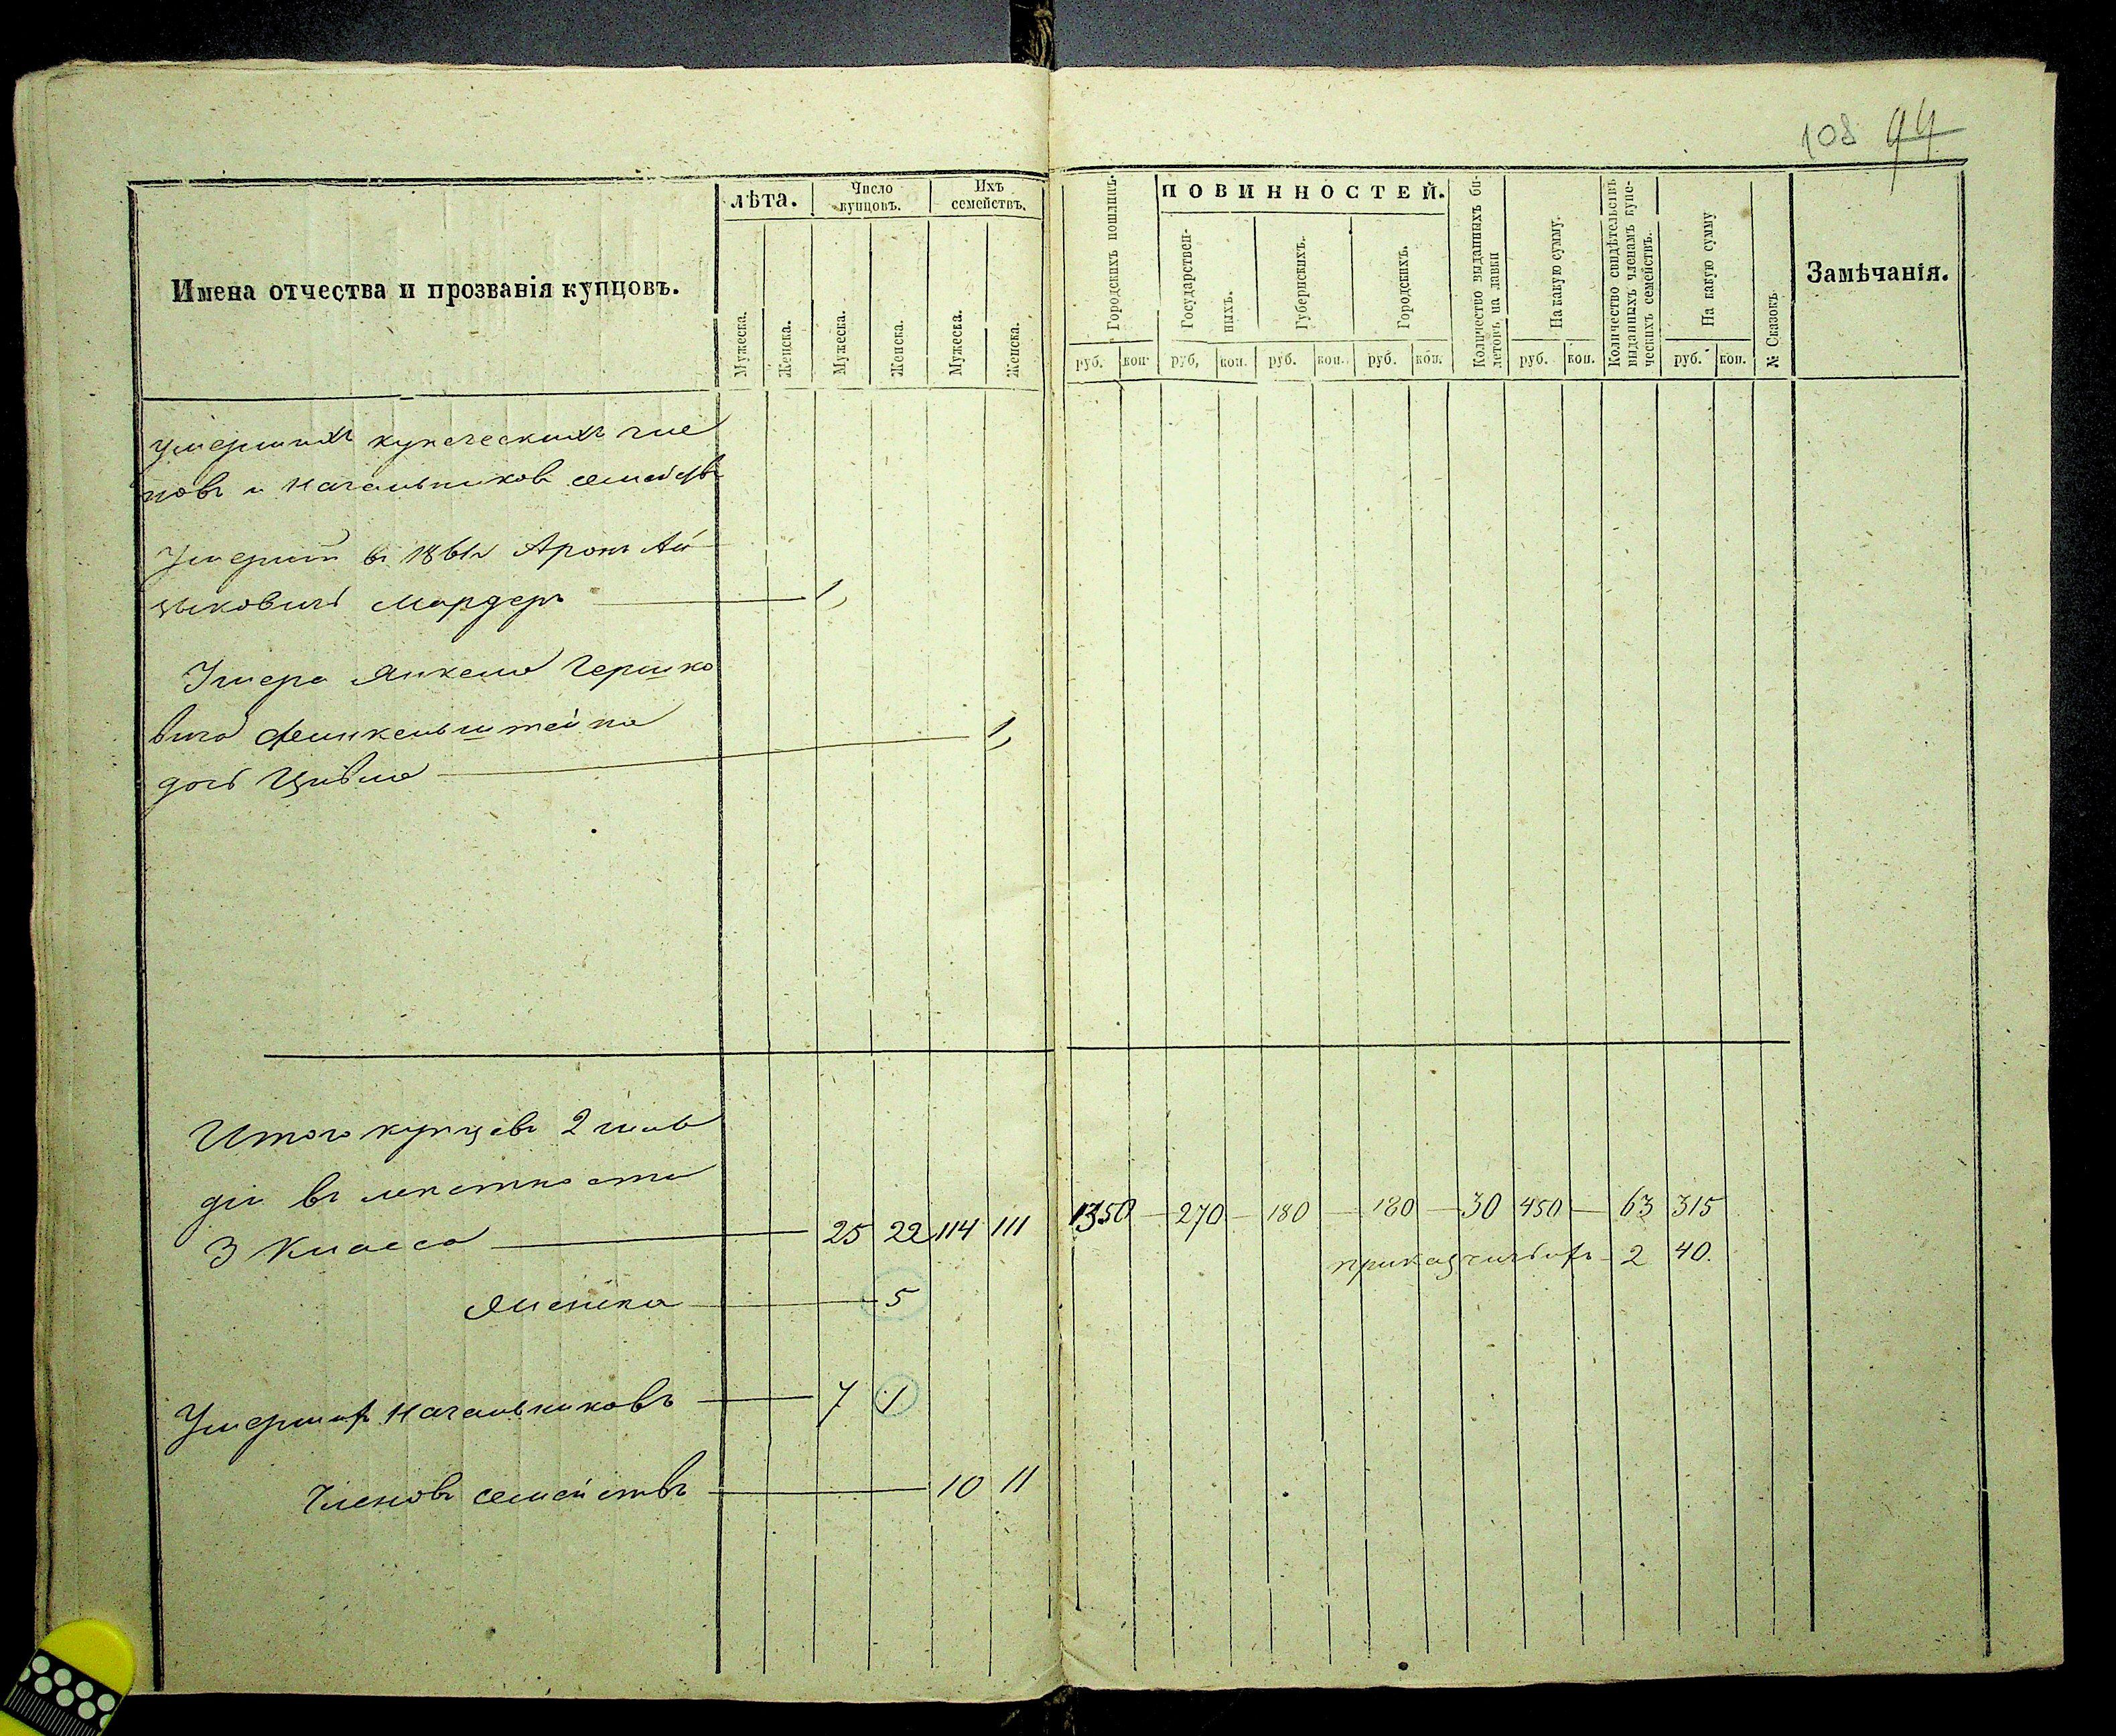 108 94
Имена отчества и прозванія купцовъ.
лѣта.
Число купцовъ.
Ихъ семействъ.
Мужеска.
Женска.
Мужеска.
Женска.
Мужеска.
Женска.
Городскихъ пошлинъ.
ПОВИННОСТЕЙ.
Государствен-
ныхъ.
Губернскихъ.
Городскихъ.
Количество выданныхъ би-
летовъ на лавки
На какую сумму.
Количество свидѣтельствъ
выданныхъ членамъ купе-
ческихъ семействъ.
На какую сумму
№ Сказокъ
Замѣчанія.
руб. коп. руб. коп. руб. коп. руб. коп. руб. коп. руб. коп.
Умершихъ купеческихъ чле
новъ и Начальниковъ семействъ
Умершій въ 1861г Аронъ Ай
цыковичъ Мардеръ 1
Умерла Янкеля Гершко
вича Финкельштейна
дочь Цивля 1
Итого купцовъ 2 гиль
діи въ мѣстности
3 Класса 25 22 114 111 1350 270 180 180 30 450 63 315
приказчичьихъ 2 40.
5
Умершихъ Начальниковъ 7 1
Членовъ семействъ 10 11